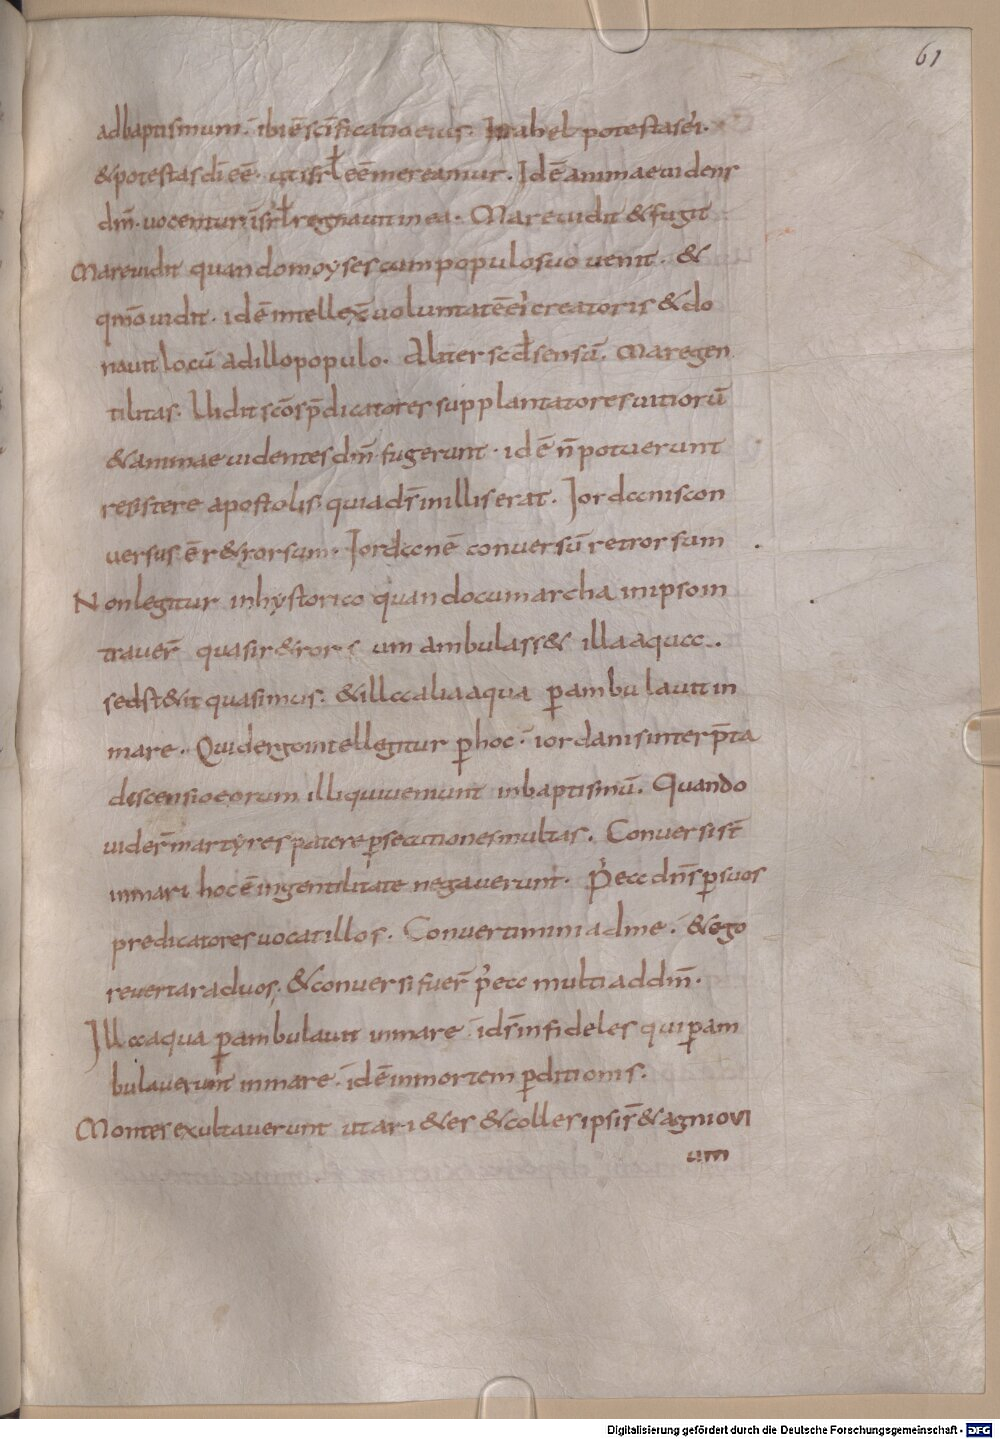 61
ad baptismum. ibi ē scīficatio eius. Israhel potestas ei.
& potestas dī eē. ut isrł eē mereamur. Id ē animae videns
dm̄. vocentur isrł regnavit in ea. Mare vidit & fugit
Mare vidit quando moyses cum populo suo venit. &
qm̄o vidit. id ē intellex̄ voluntatē ei creatoris & do
navit locū ad illo populo. Aliter scd sensū. Mare gen
tilitas. Vidit scōs p̄dicatores supplantatores vitiorū
& animae videntes dm̄ fugerunt. id ē n̄ potuerunt
resistere apostolis quia ds̄ in illis erat. Jordanis con
versus ē r&rorsum. Jordanē conversū retrorsum
Non legitur in hystorico quando cum archa in ipso in
traver̄ quasi r&rors um ambulass& illa aqua.
sed st&it quasi mus. & illa alia aqua p̱ambulavit in
mare. Quid ergo intellegitur p̱ hoc. iordanis interp̄ta
descensio eorum illi qui veniunt in baptismū. Quando
vider̄ martyres patere p̱secutiones multas. Conversi st̄
in mari hoc ē in gentilitate negaverunt. P̱ ea dn̄s p̱ suos
predicatores vocat illos. Convertimini ad me. & ego
revertar ad vos. & conversi fuer̄ p̱ ea multi ad dm̄.
Illa aqua p̱ambulavit in mare. id s̄ infideles qui p̱am
bulaverunt in mare. id ē in mortem p̱ditionis.
Montes exultaverunt ut ari&es & colles ipsis̄ & agni ovi
um
Digitalisierung gefördert durch die Deutsche Forschungsgemeinschaft - DFG